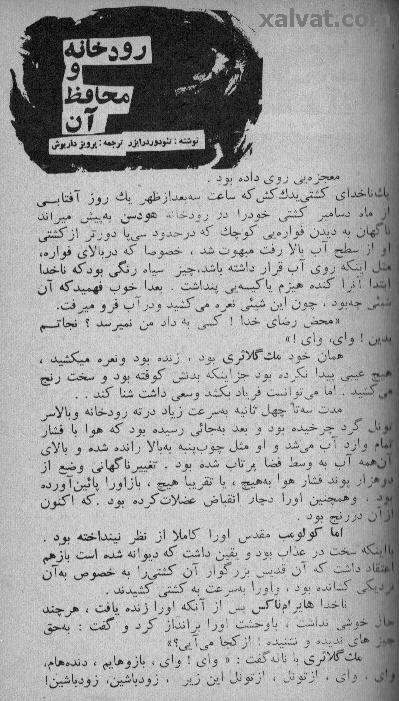 xalvat.com
رودخانه
و
محافظ
آن
نوشته : تئودور درایزر ترجمه : پرویز داریوش
معجزه‌یی روی داده بود .
یك ناخدای کشتی یدك کش که ساعت سه بعدازظهر یك روز آفتابی
از ماه دسامبر کشتی خودرا در رودخانه هودسن به‌پیش میراند
ناگهان به دیدن فواره‌یی کوچك که درحدود سی پا دورتر از کشتی
او از سطح آب بالا رفت مبهوت شد ، خصوصا که دربالای فواره،
مثل اینکه روی آب قرار داشته باشد،چیز سیاه رنگی بود که ناخدا
ابتدا آنرا کنده هیزم یا کیسه‌یی پنداشت . بعدا خوب فهمید که آن
شیئی چه‌بود ، چون این شیئی نعره می کشید ودر آب فرو میرفت.
«محض رضای خدا ! کسی به داد من نمیرسد ؟ نجاتم
بدین ! وای، وای !»
همان خود مك گلاثری بود ، زنده بود ونعره میکشید ،
هیچ عیبی پیدا نکرده بود جز اینکه بدنش کوفته بود و سخت رنج
می کشید . اما می‌توانست فریاد بکشد وسعی داشت شنا کند . .
مدت سه تا چهل ثانیه به‌سرعت زیاد درته رودخانه وبالاسر
تونل گرد چرخیده بود و بعد به‌جائی رسیده بود که هوا با فشار
تمام وارد آب می‌شد و او مثل چوب‌پنبه به‌بالا رانده شده و بالای
آن‌همه آب به وسط فضا پرتاب شده بود . تغییر ناگهانی وضع از
دوهزار پوند فشار هوا به‌هیچ ، یا تقریبا هیچ ، بازاورا پائین‌آورده
بود . وهمچنین اورا دچار انقباض عضلات کرده بود .که اکنون
از آن دررنج بود .
اما کولومب مقدس اورا کاملا از نظر نینداخته بود .
با اینکه سخت در عذاب بود و یقین داشت که دیوانه شده است بازهم
اعتقاد داشت که آن قدیس بزرگوار آن کشتی‌را به خصوص به‌آن
نزدیکی کشانده بود ، و اورا به‌سرعت به کشتی کشیدند .
ناخدا هایرام ناکس پس از آنکه اورا زنده یافت ، هرچند
حال خوشی نداشت ، باوحشت اورا برانداز کرد و گفت : به‌حق
چیز های ندیده و نشنیده ! از کجا می‌آیی؟»
مك گلاثری با ناله گفت : « وای ! وای ، بازوهایم ، دنده‌هام،
وای ، وای ، ازتونل ، ازتونل این زیر . زودباشین، زودباشین!